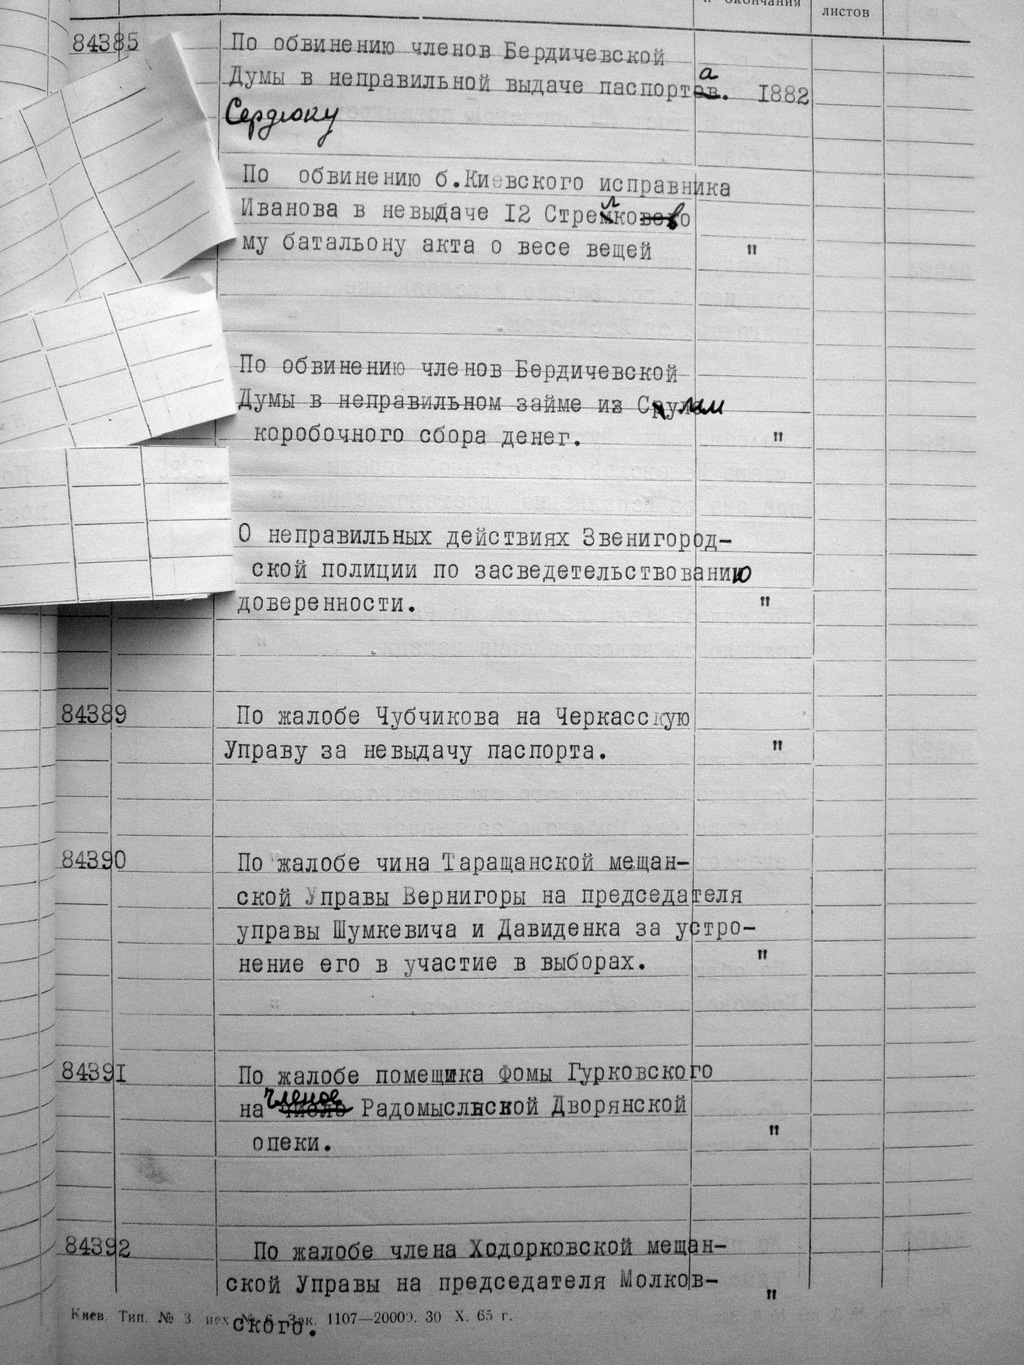 и окончания
листов
84385 По обвинению членов Бердичевской
Думы в неправильной выдаче паспорта. 1882
Сердюку
По обвинению б.Киевского исправника
Иванова в невыдаче 12 Стрелково
му батальону акта о весе вещей "
По обвинению членов Бердичевской
Думы в неправильном займе из
коробочного сбора денег. "
О неправильных действиях Звенигород-
ской полиции по засведетельствованию
доверенности. "
84389 По жалобе Чубчикова на Черкасскую
Управу за невыдачу паспорта. "
84390 По жалобе чина Таращанской мещан-
ской Управы Вернигоры на председателя
управы Шумкевича и Давиденка за устро-
нение его в участие в выборах. "
84391 По жалобе помещика Фомы Гурковского
на членов Радомысльской Дворянской
опеки. "
84392 По жалобе члена Ходорковской мещан-
ской Управы на председателя Молков-
ского. "
Киев. Тип. № 3. цех № 6. Зак. 1107—20000. 30 X. 65 г.